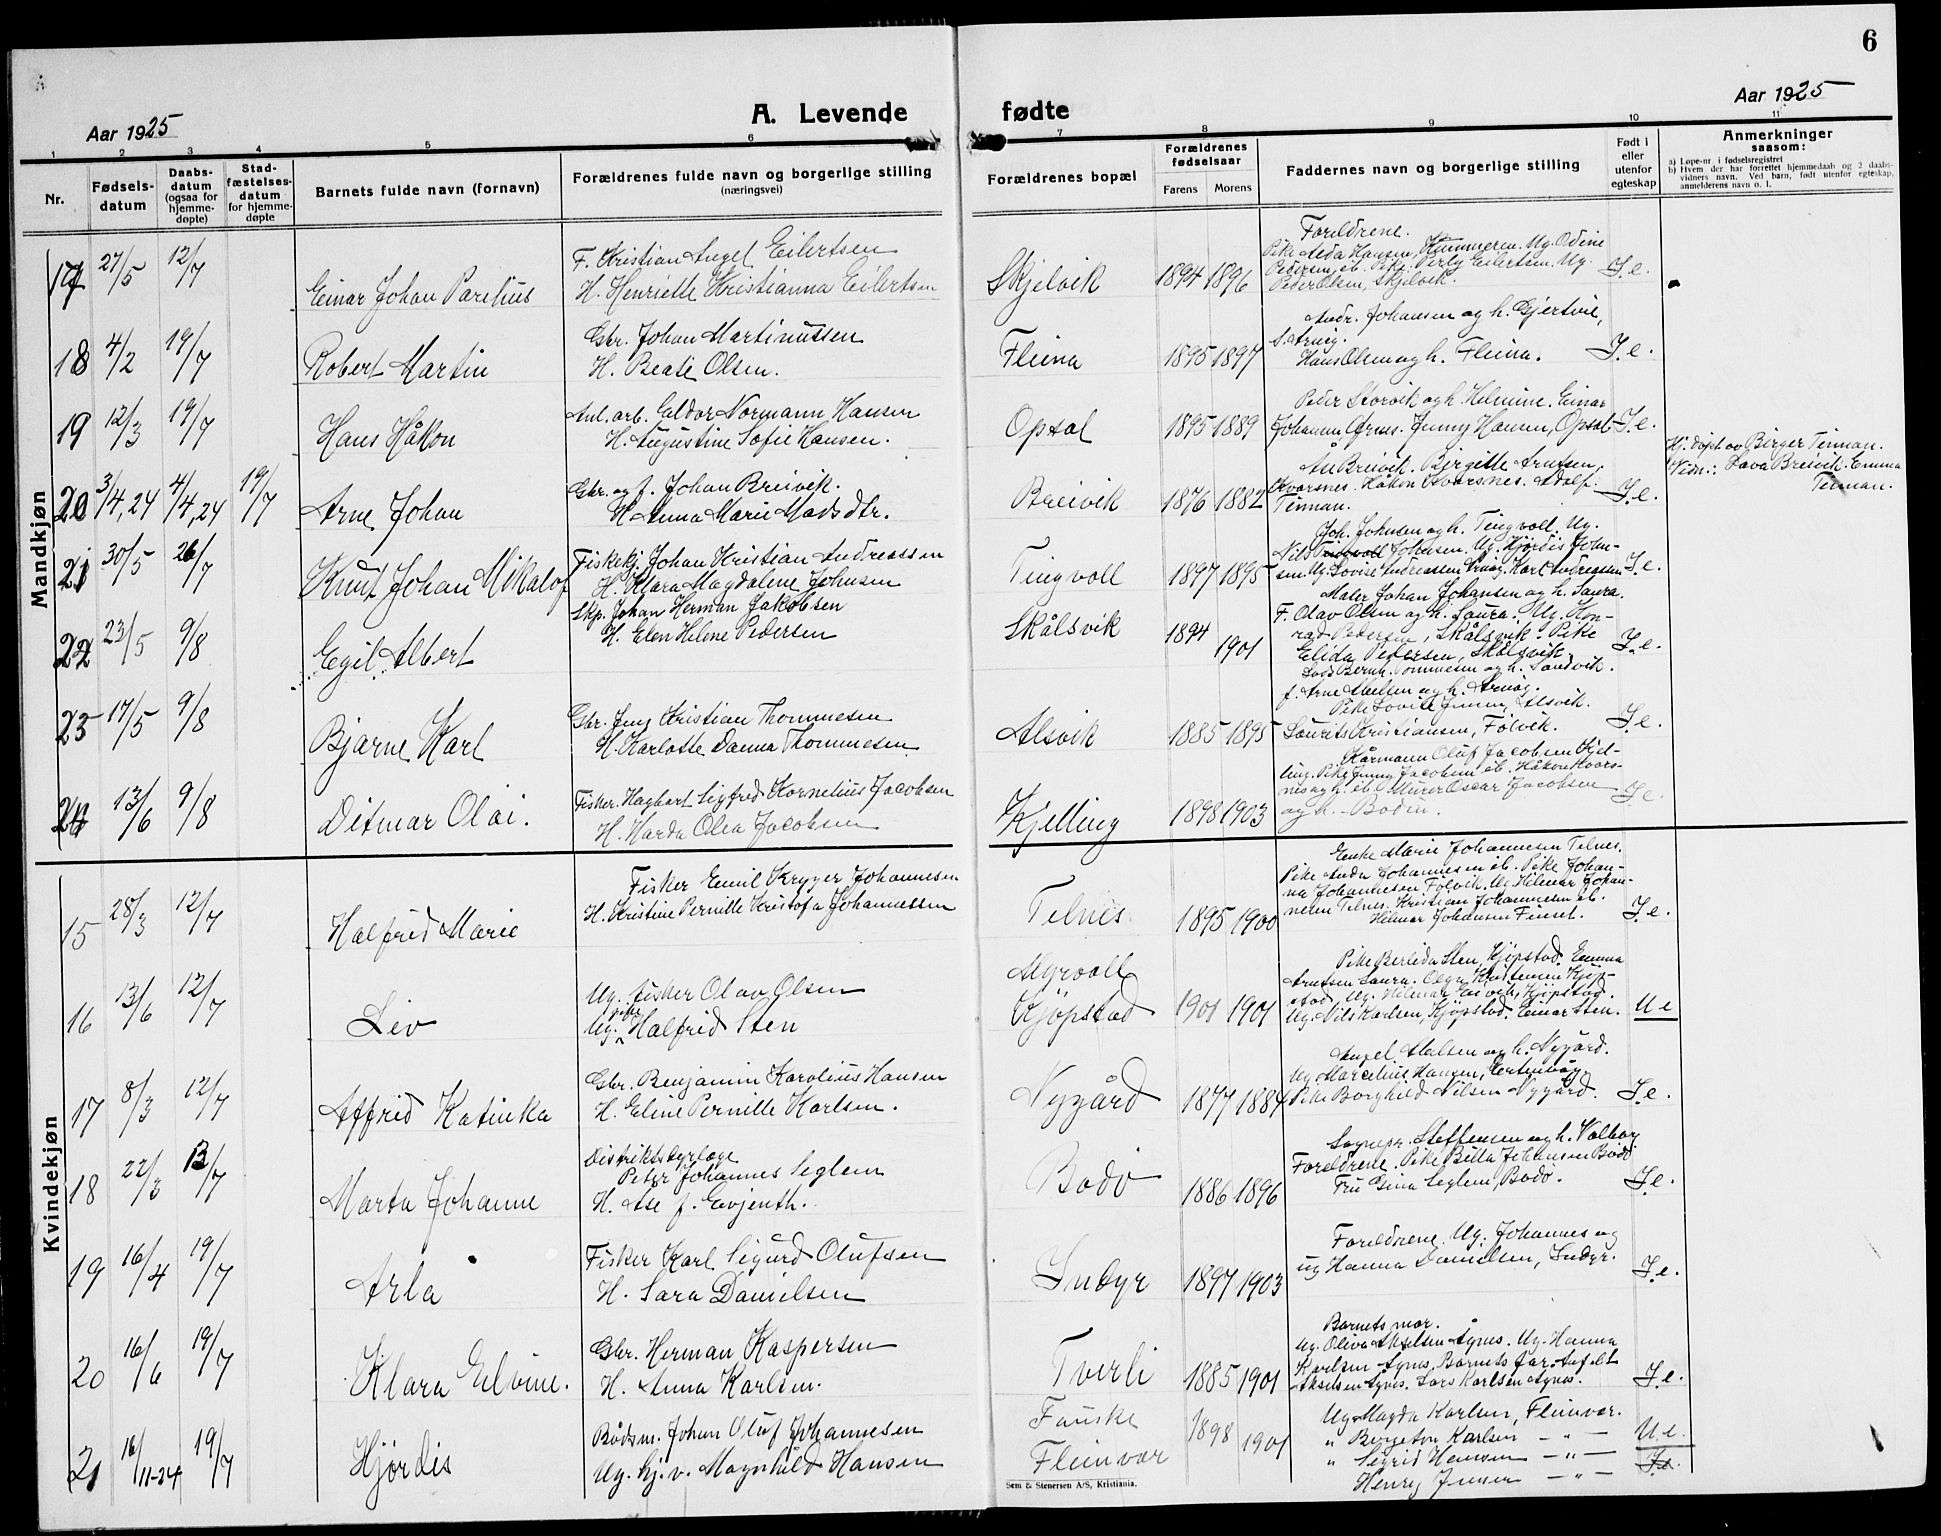 6
Aar 1925
A. Levende
fødte
Aar 1925
1 2 3 4 5 6 7 8 9 10 11
Nr.
Fødsels-
datum
Daabs-
datum
(ogsaa for
hjemme-
døpte)
Stad-
fæstelses-
datum
for hjemme-
døpte
Barnets fulde navn (fornavn)
Forældrenes fulde navn og borgerlige stilling
(næringsvei)
Forældrenes bopæl
Forældrenes
fødselsaar
Farens Morens
Faddernes navn og borgerlige stilling
Født i
eller
utenfor
egteskap
Anmerkninger
saasom:
a) Løpe-nr. i fødselsregistret
b) Hvem der har forrettet hjemmedaab og 2 daabs-
vidners navn. Ved barn, født utenfor egteskap,
anmelderens navn o. l.
Mandkjøn
17 27/5 12/7 Einar Johan Parelius
F. Kristian Angel Eilertsen
H. Henriette Kristianna Eilertsen
Skjelvik 1894 1896
Foreldrene.
Pike Alda Hansen, Ug. Odine
Pedersen ib. Pike Perly Eilertsen. Ug.
Peder Olsen, Skjelvik.
I.e.
18 4/2 19/7 Robert Martin
Gbr. Johan Martinussen
H. Beate Olsen.
Fleina 1895 1897
Andr. Johansen og h. Gjertvik,
S. Arnøy.
Hans Olsen og h. Fleina.
I.e.
19 12/3 19/7 Hans Håkon
Anl. arb. Eldor Normann Hansen
H. Augustine Sofie Hansen.
Opsal 1895 1889
Peder Storvik og h. Helmine. Einar
Johansen Jenny Hansen, Opsal
I.e.
20 3/4, 24 4/4, 24 19/7 Arne Johan
Gbr. og f. Johan Breivik.
H. Anna Marie Madsdtr.
Breivik 1876 1882
Åse Breivik. Birgitte Arntsen,
Kvarsnes. Håkon Kvarsnes. Adolf
Tinman.
I.e.
Hj. døpt av Birger Tinman.
Vidn.: Lava Breivik. Emma
Tinman.
21 30/5 26/7 Knut Johan Mikalof
Fiskekj. Johan Kristian Andreassen
H. Klara Magdalene Johnsen
Tingvoll 1897 1895
Joh. Johnsen og h. Tingvoll. Ug.
Nils Tingvoll Johnsen. Ug. Hjørdis John-
sen. Ug. Lovise Andreassen Arnøy. Karl Andreassen
Maler Johan Johansen og h. Saura.
I.e.
22 23/5 9/8 Egil Albert
Skp. Johan Herman Jakobsen
H. Elen Helene Pedersen
Skålsvik 1894 1901
F. Olav Olsen og h. Saura. Ug. Kon-
rad Pedersen, Skålsvik. Pike
Elida Pedersen, Skålsvik.
I.e.
23 17/5 9/8 Bjarne Karl
Gbr. Jens Kristian Thommesen
H. Karlotte Danna Thommesen
Alsvik 1885 1895
Bernh. Tommesen og h. Sandvik.
f. Arne Abelsen og h. Arnøy.
Pike Lovise Jensen, Alsvik.
Laurits Kristiansen, Følvik.
I.e.
24 13/6 9/8 Ditmar Olai.
Fisker. Hagbart Sigfred Kornelius Jacobsen
H. Harda Olea Jacobsen
Kjelling 1898 1903
Hårmann Oluf Jacobsen Kjel-
ling. Pike Jenny Jacobsen ib. Håkon Kvars-
nes og h. ib. Murer Oscar Jacobsen
og h. Bodin.
I.e.
Kvindekjøn
15 28/3 12/7 Halfrid Marie
Fisker Emil Kryger Johannesen
H. Kristine Pernille Kristofa Johannessen
Telnes 1895 1900
Enke Marie Johannesen Telnes.
Pike Anda Johannesen ib. Pike Johan-
na Johannesen Følvik. Ug. Hilmar Johan-
nesen Telnes. Kristian Johannesen ib.
Helmar Johansen Finset.
I.e.
16 13/6 12/7 Liv
Ug. fisker Olav Olsen
Ug. pike Halfrid Sten
Myrvoll
Kjøpstad 1901 1901
Pike Berlida Sten, Kjøpstad. Emma
Arntsen Saura. Olga Kristensen Kjøp-
stad. Ug. Hilmar Kjøpstad.
Ug. Nils Karlsen, Kjøpstad. Einar Sten.
U e
17 8/3 12/7 Affrid Katinka
Gbr. Benjamin Karolius Hansen
H. Eline Pernille Karlsen.
Nygård 1877 1884
Angel Abelsen og h. Nygård.
Ug. Marcelius Hansen,
Pike Borghild Nilsen Nygård.
I.e.
18 22/3 13/7 Marta Johanne
Distriktsdyrlæge
Peter Johannes Seglem
H. Åse f. Evjenth.
Bodø 1886 1896
Sognepr. Steffensen og h. Valborg
Foreldrene. Pike Betta Johansen Bodø
Fru Gina Seglem, Bodø.
I.e.
19 16/4 19/7 Arla
Fisker Karl Sigurd Olufsen
H. Sara Danielsen
Indyr 1897 1903
Foreldrene. Ug. Johannes og
ug Hanna Danielsen, Indyr.
I.e.
20 16/6 19/7 Klara Elvine.
Gbr. Herman Kaspersen
H. Anna Karlsen.
Tverli 1885 1901
Barnets mor.
Ug. Oliva Akselsen Ågnes. Ug. Hanna
Karlsen Ågnes. Barnets far.
Akselsen Ågnes. Lars Karlsen Ågnes.
I.e.
21 16/11-24 19/7 Hjørdis
Bådsm. Johan Oluf Johannesen
Ug. hj. v. Magnhild Hansen
Fauske
Fleinvær 1898 1901
Ug. Magda Karlsen, Fleinvær.
" Borgeton Karlsen — " —
" Sigrid Hansen — " —
Henry Jensen — " —
U e.
I.e.
Sem & Stenersen A/S, Kristiania.